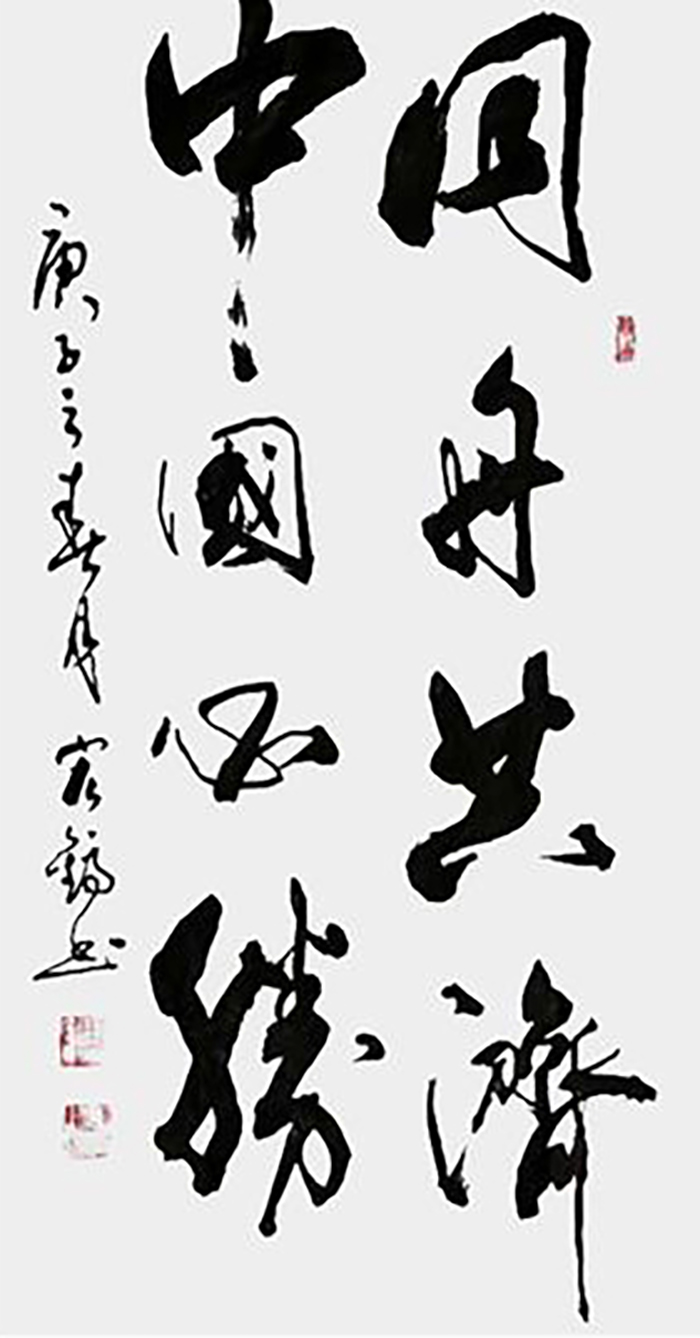 同舟共濟
中國必勝
庚子之春月宏鎬书